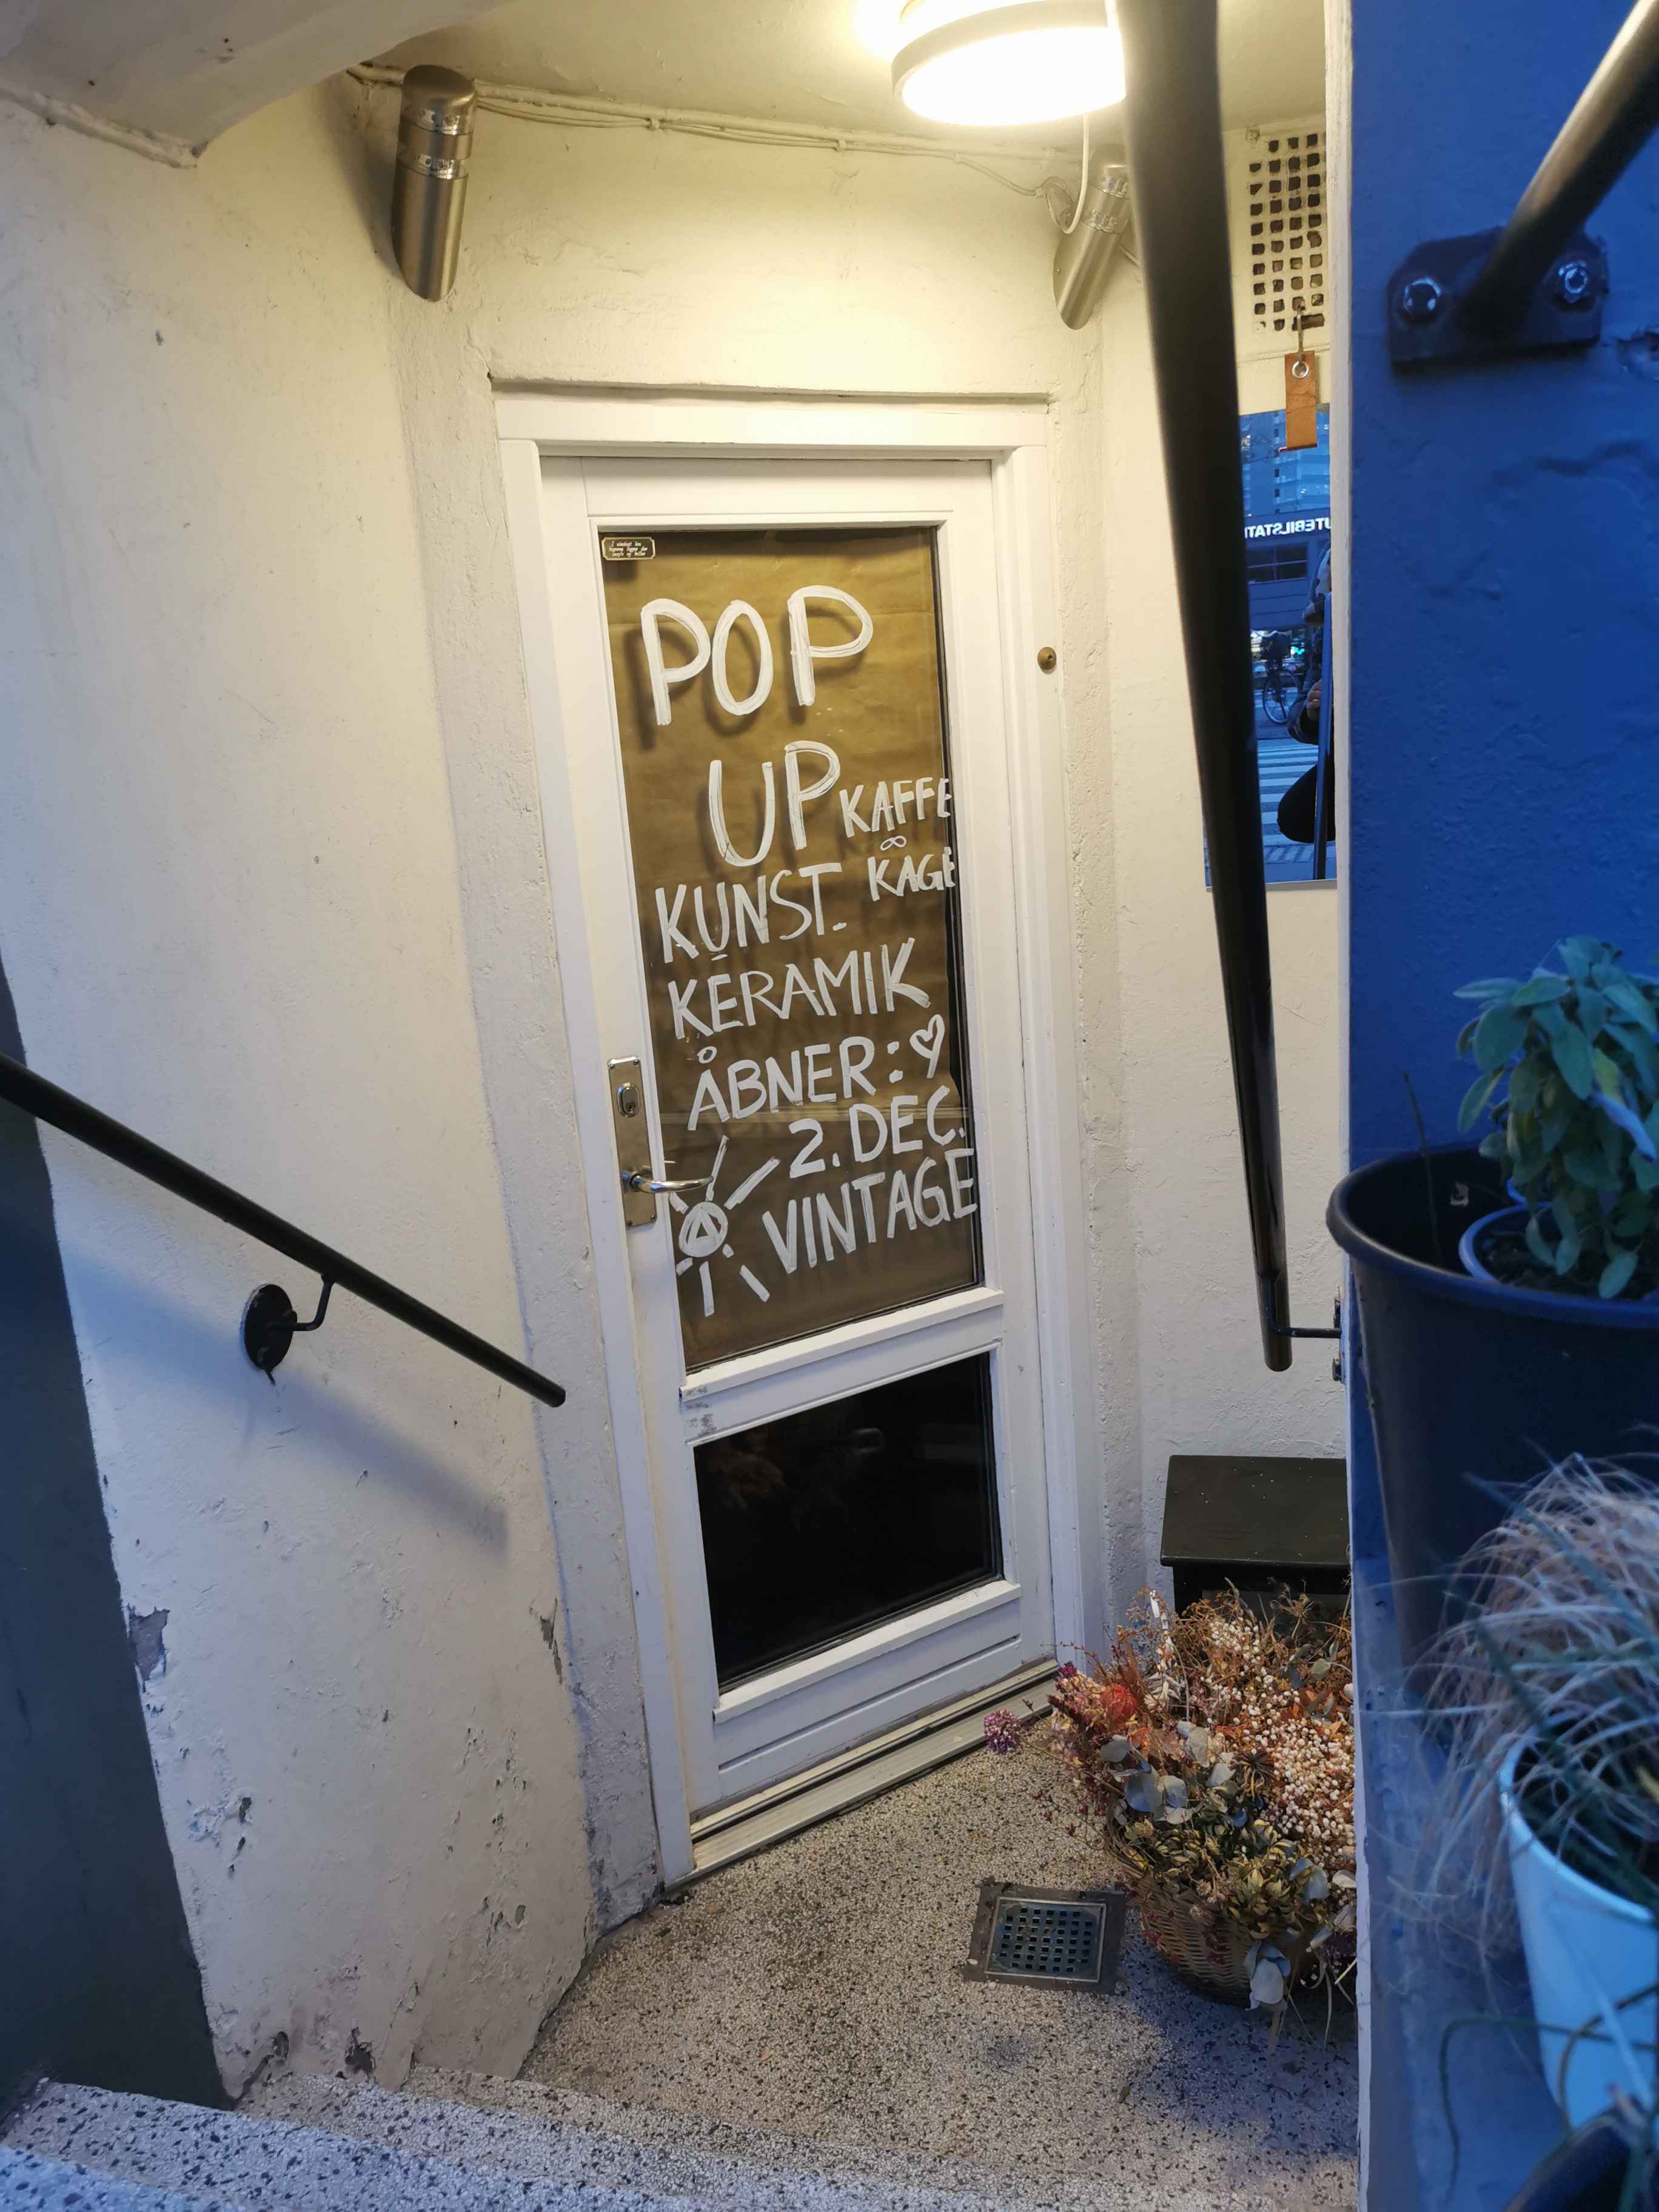 POP
UP
KAFFE
∞
KAGE
KUNST.
KERAMIK
ÅBNER: ♡
2. DEC.
VINTAGE
UTEBILSTAT